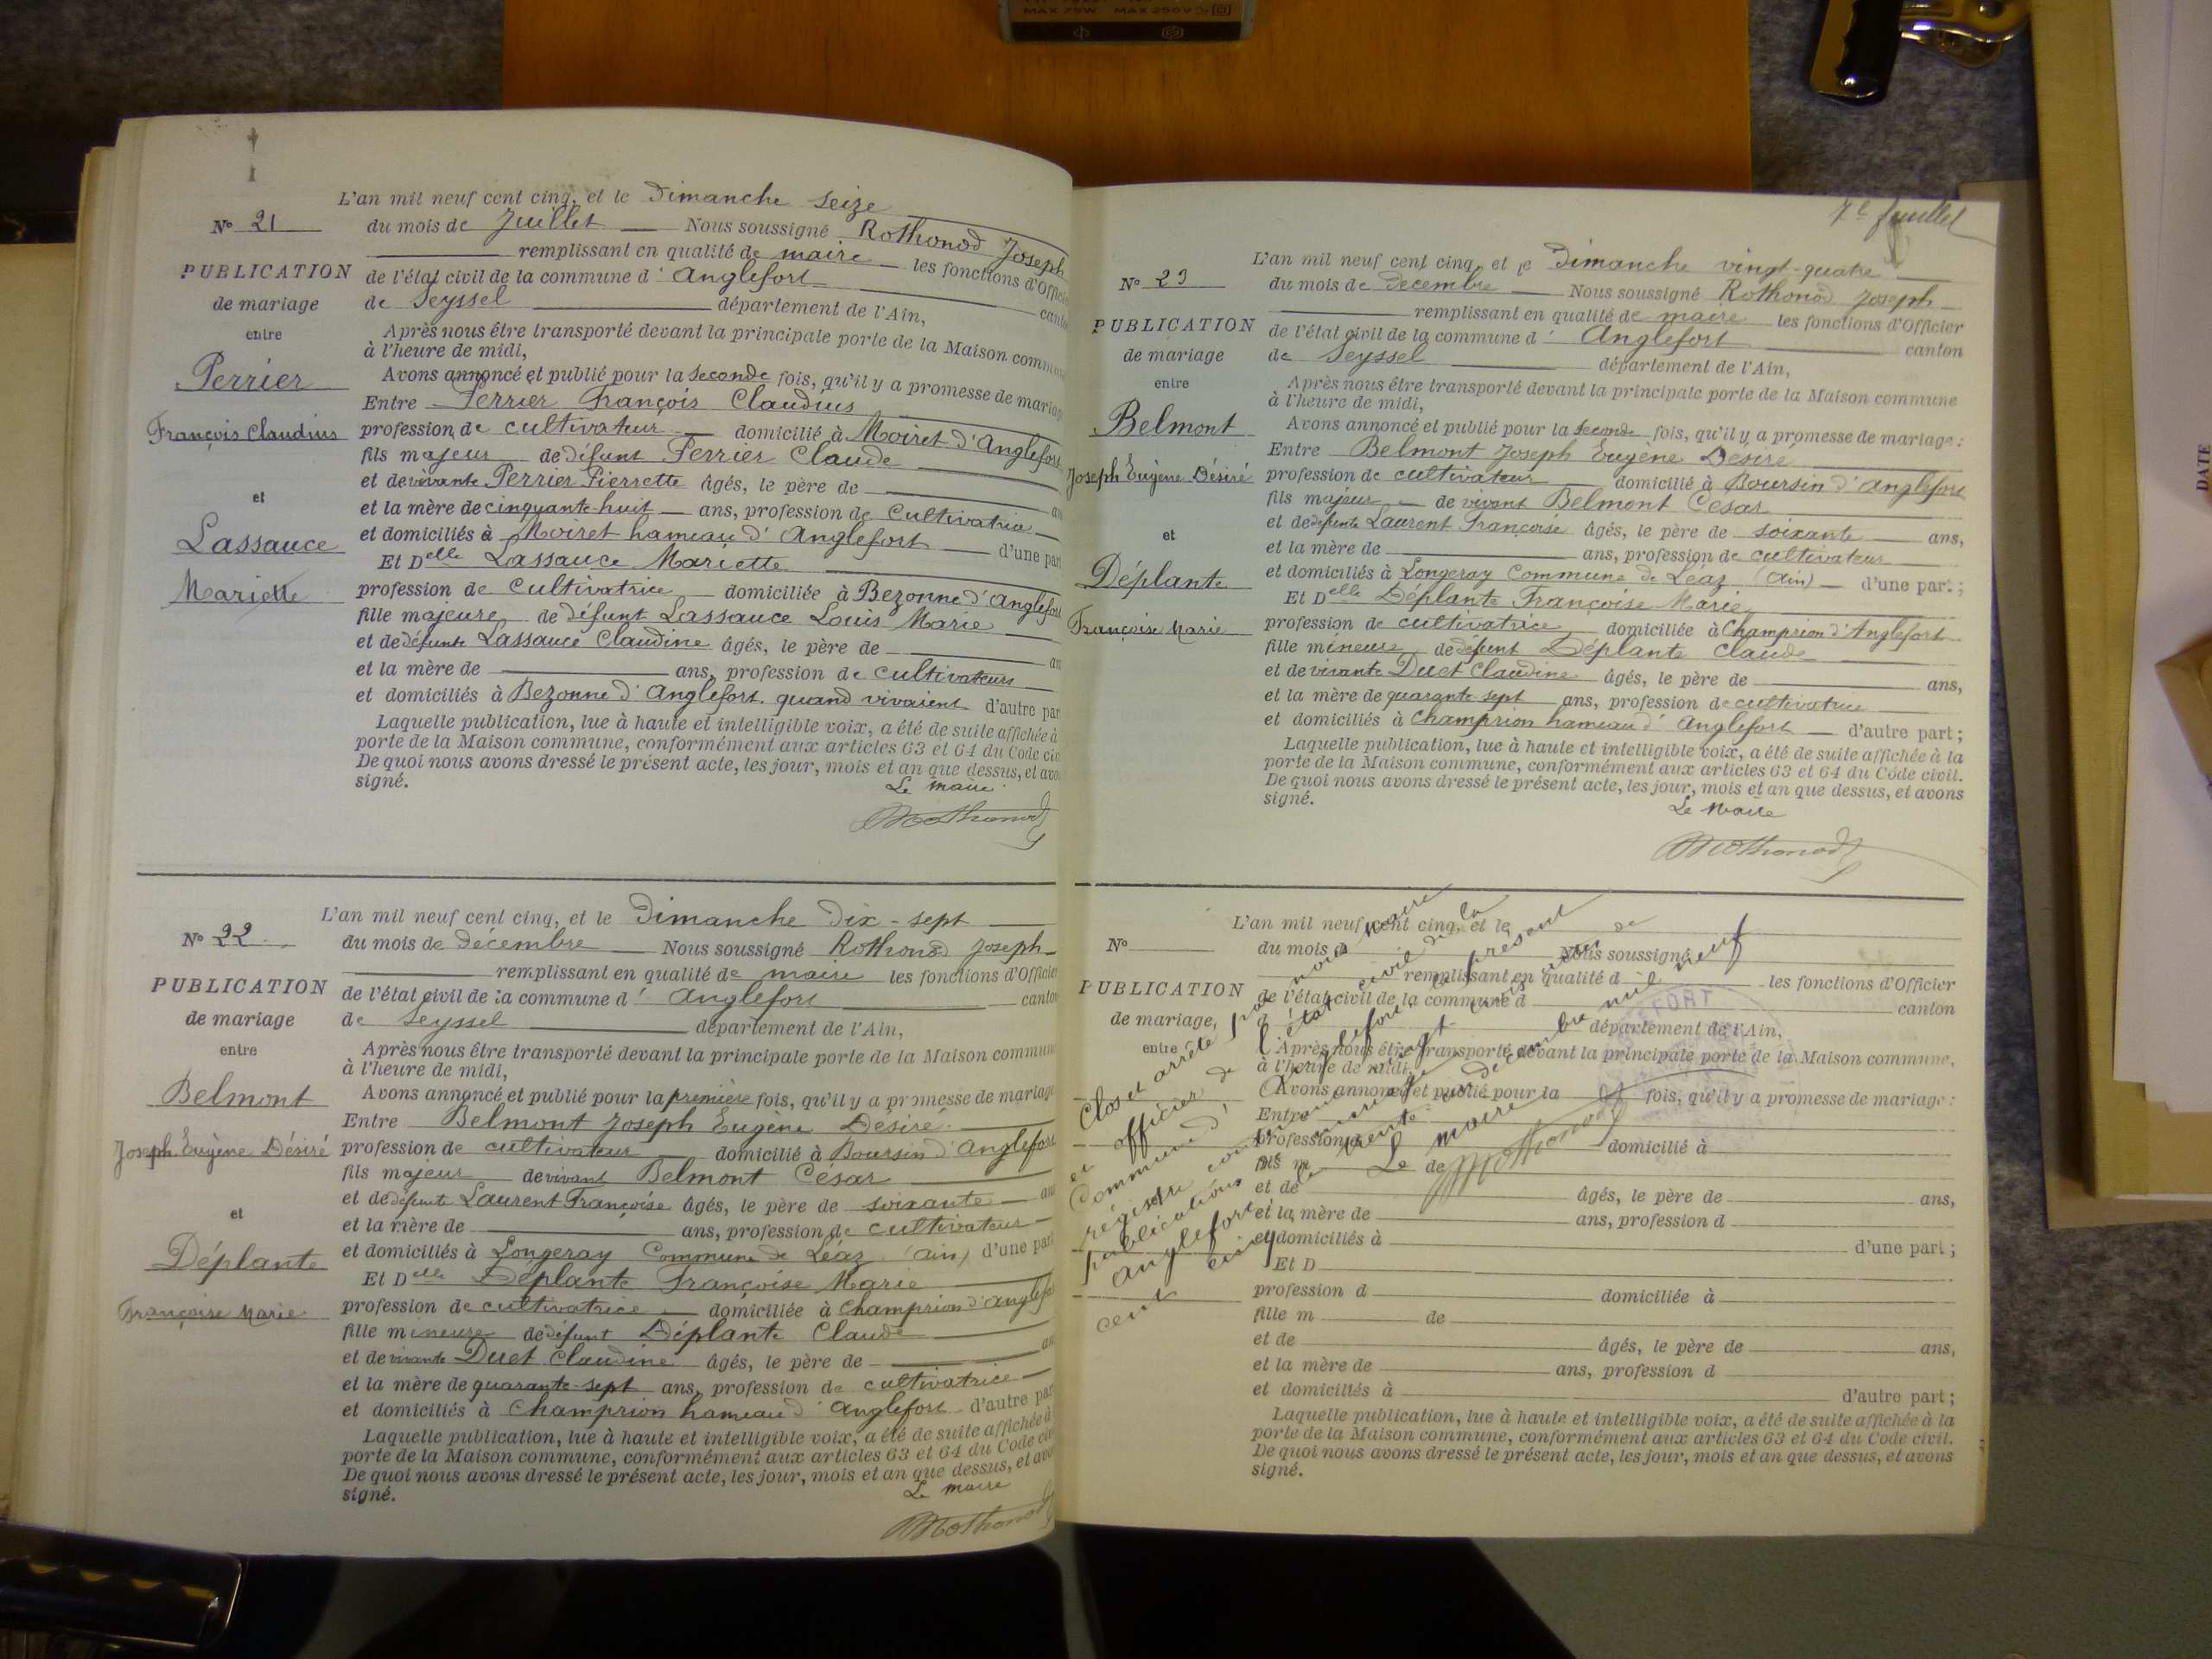 MAX 75W MAX 250V
DATE
L'an mil neuf cent cinq, et le Dimanche seize
N° 21
du mois de Juillet Nous soussigné Rothonod Joseph
remplissant en qualité de maire les fonctions d'Officie
PUBLICATION
de l'état civil de la commune d' Anglefort canto
de mariage
de Seyssel département de l'Ain,
entre
Après nous être transporté devant la principale porte de la Maison commun
à l'heure de midi,
Perrier
Avons annoncé et publié pour la seconde fois, qu'il y a promesse de mariage
Entre Perrier François Claudius
François Claudius
profession de cultivateur domicilié à Moiret d'Anglefort
fils majeur de défunt Perrier Claude
et de vivante Perrier Pierrette âgés, le père de an
et
et la mère de cinquante-huit ans, profession de Cultivatrice
et domiciliés à Moiret hameau d' Anglefort d'une part
Lassauce
Et Delle Lassauce Mariette
Mariette
profession de cultivatrice domiciliée à Bezonne d'Anglefort
fille majeure de défunt Lassauce Louis Marie
et de défunte Lassauce Claudine âgés, le père de an
et la mère de ans, profession de cultivateurs
et domiciliés à Bezonne d'Anglefort quand vivaient d'autre par
Laquelle publication, lue à haute et intelligible voix, a été de suite affichée à
porte de la Maison commune, conformément aux articles 63 et 64 du Code civ
De quoi nous avons dressé le présent acte, les jour, mois et an que dessus, et avo
signé.
Le maire
Rothonod
L'an mil neuf cent cinq, et le Dimanche Dix-sept
N° 22
du mois de Décembre Nous soussigné Rothonod Joseph
remplissant en qualité de maire les fonctions d'Officie
PUBLICATION
de l'état civil de la commune d' Anglefort canton
de mariage
de Seyssel département de l'Ain,
entre
Après nous être transporté devant la principale porte de la Maison commun
à l'heure de midi,
Belmont
Avons annoncé et publié pour la première fois, qu'il y a promesse de mariage
Entre Belmont Joseph Eugène Désiré
Joseph Eugène Désiré
profession de cultivateur domicilié à Boursin d'Anglefort
fils majeur de vivant Belmont César
et de défunte Laurent Françoise âgés, le père de soixante an
et
et la mère de ans, profession de cultivateur
et domiciliés à Longeray Commune de Léaz (Ain) d'une part
Déplante
Et Delle Déplante Françoise Marie
Françoise Marie
profession de cultivatrice domiciliée à Champrion d'Anglefo
fille mineure de défunt Déplante Claude
et de vivante Duet Claudine âgés, le père de an
et la mère de quarante-sept ans, profession de cultivatrice
et domiciliés à Champrion hameau d' Anglefort d'autre par
Laquelle publication, lue à haute et intelligible voix, a été de suite affichée à
porte de la Maison commune, conformément aux articles 63 et 64 du Code civ
De quoi nous avons dressé le présent acte, les jour, mois et an que dessus, et avo
signé.
Le maire
Rothonod
7e feuillet
L'an mil neuf cent cinq, et le Dimanche vingt-quatre
N° 23
du mois de Décembre Nous soussigné Rothonod Joseph
remplissant en qualité de maire les fonctions d'Officier
PUBLICATION
de l'état civil de la commune d' Anglefort canton
de mariage
de Seyssel département de l'Ain,
entre
Après nous être transporté devant la principale porte de la Maison commune
à l'heure de midi,
Belmont
Avons annoncé et publié pour la seconde fois, qu'il y a promesse de mariage :
Entre Belmont Joseph Eugène Désiré
Joseph Eugène Désiré
profession de cultivateur domicilié à Boursin d'Anglefort
fils majeur de vivant Belmont César
et de défunte Laurent Françoise âgés, le père de soixante ans,
et
et la mère de ans, profession de cultivateur
et domiciliés à Longeray Commune de Léaz (Ain) d'une part ;
Déplante
Et Delle Déplante Françoise Marie
Françoise Marie
profession de cultivatrice domiciliée à Champrion d'Anglefort
fille mineure de défunt Déplante Claude
et de vivante Duet Claudine âgés, le père de ans,
et la mère de quarante-sept ans, profession de cultivatrice
et domiciliés à Champrion hameau d' Anglefort d'autre part ;
Laquelle publication, lue à haute et intelligible voix, a été de suite affichée à la
porte de la Maison commune, conformément aux articles 63 et 64 du Code civil.
De quoi nous avons dressé le présent acte, les jour, mois et an que dessus, et avons
signé.
Le Maire
Rothonod
L'an mil neuf cent cinq, et le
N°
du mois d Nous soussigné
remplissant en qualité d les fonctions d'Officier
PUBLICATION
de l'état civil de la commune d canton
de mariage,
d département de l'Ain,
entre
Après nous être transporté devant la principale porte de la Maison commune,
à l'heure de midi,
Avons annoncé et publié pour la fois, qu'il y a promesse de mariage :
Entre
profession d domicilié à
fils m de
et de âgés, le père de ans,
et la mère de ans, profession d
et domiciliés à d'une part ;
Et D
profession d domiciliée à
fille m de
et de âgés, le père de ans,
et la mère de ans, profession d
et domiciliés à d'autre part ;
Laquelle publication, lue à haute et intelligible voix, a été de suite affichée à la
porte de la Maison commune, conformément aux articles 63 et 64 du Code civil.
De quoi nous avons dressé le présent acte, les jour, mois et an que dessus, et avons
signé.
Clos et arrêté par nous maire
et officier de l'état civil de la
commune d'Anglefort le présent
registre contenant vingt trois actes de
publications de mariage
Anglefort le trente un décembre mil neuf
cent cinq
Le maire
Rothonod